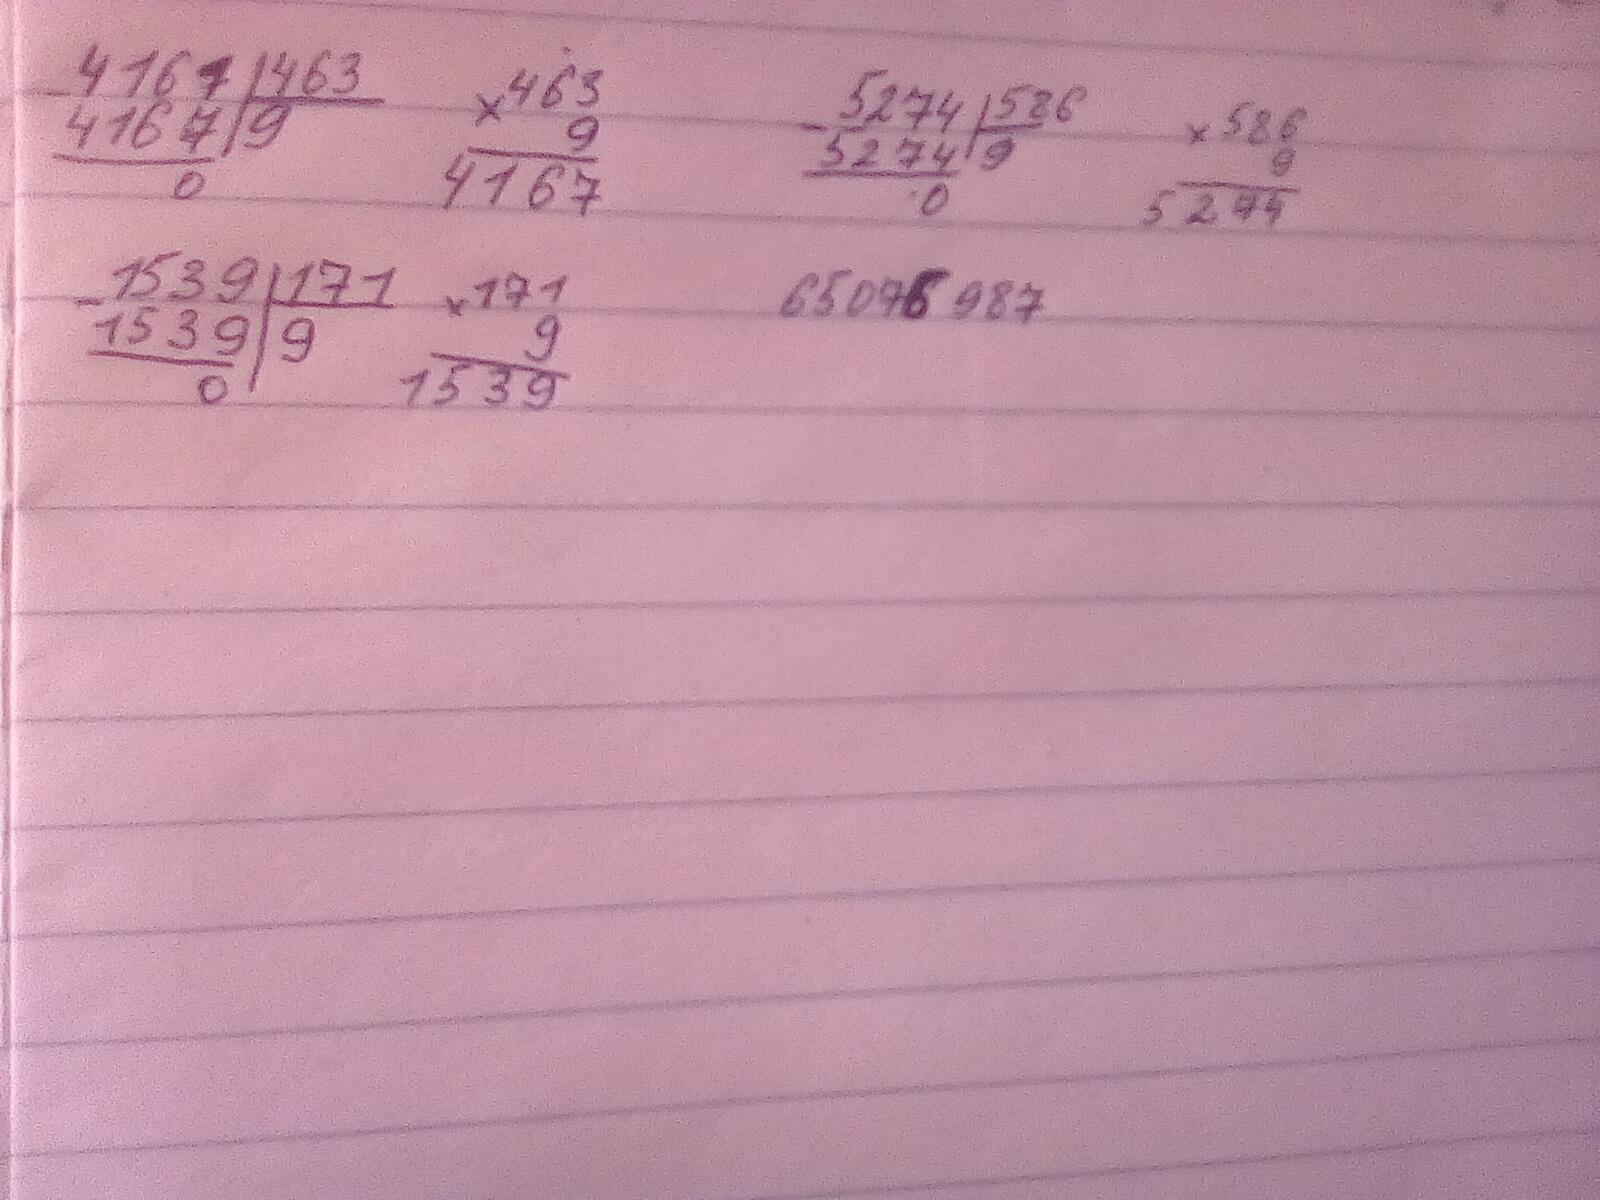 4167 463 × 463 5274 586 × 586
- 4167 9 9 - 5274 9 9
0 4167 0 5274
- 1539 171 × 171 987
1539 9 9
0 1539